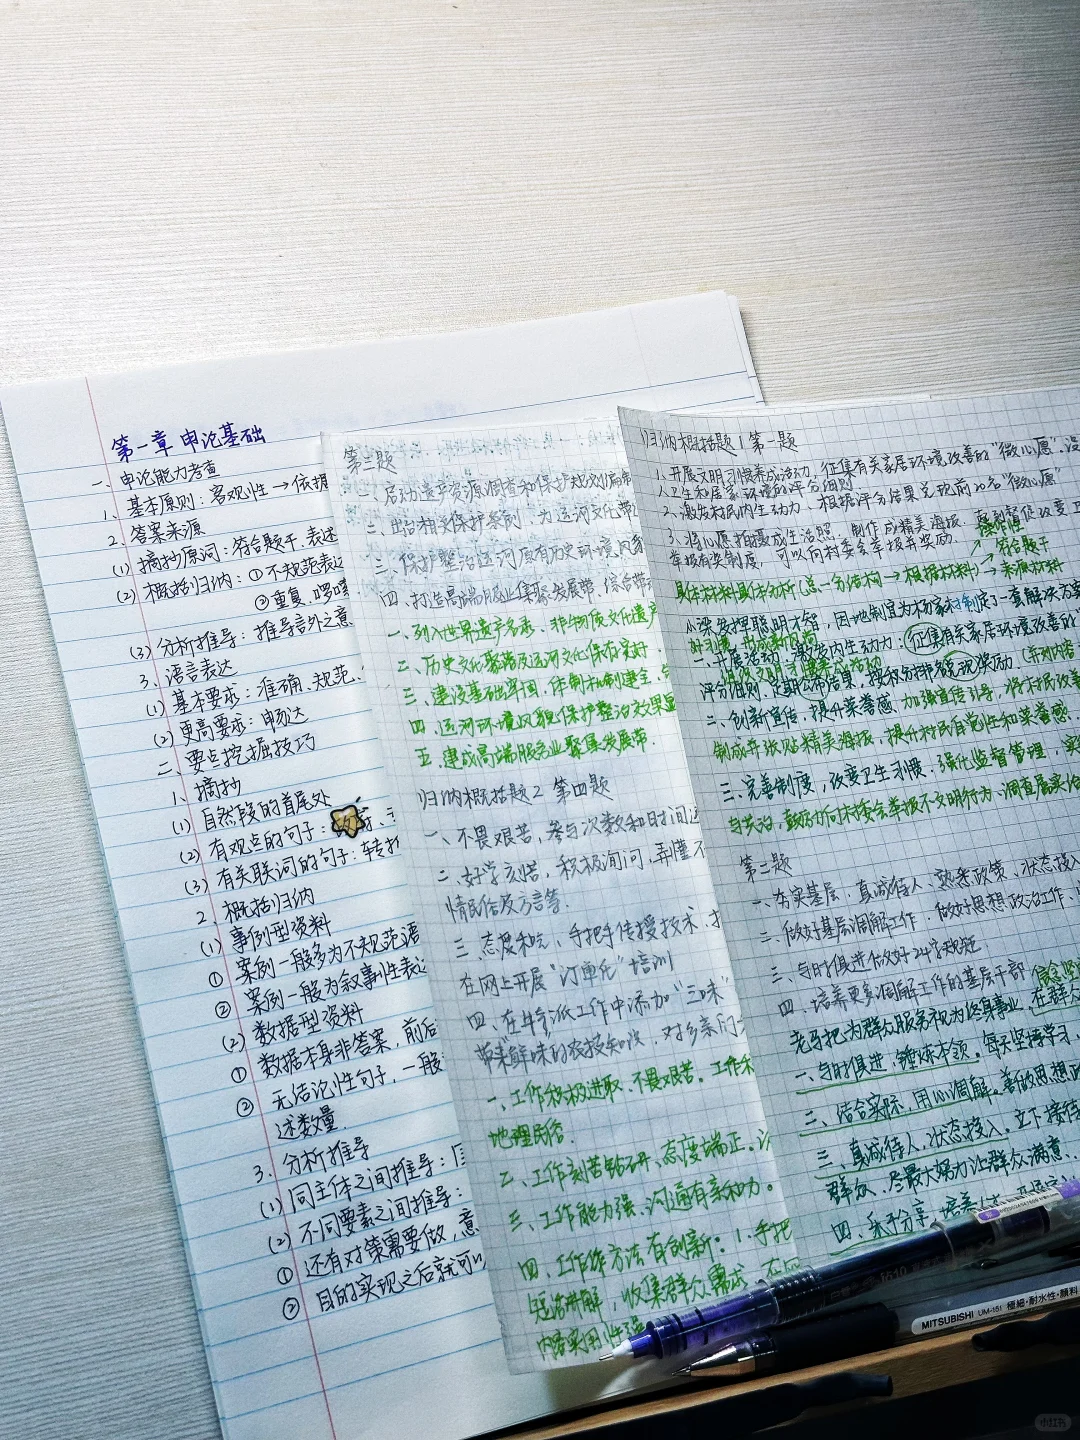 第一章 申论基础
一、申论能力考查
1、基本原则：客观性→依据
2、答案来源
(1) 摘抄原词：符合题干、表述
(2) 概括归纳：①不规范表述
②重复、啰嗦
(3) 分析推导：推导言外之意
3、语言表达
(1) 基本要求：准确、规范、
(2) 更高要求：申畅达
二、要点挖掘技巧
1、摘抄
(1) 自然段的首尾处
(2) 有观点的句子：
(3) 有关联词的句子：转折
2、概括归纳
(1) 事例型资料
① 案例一般多为不规范语
② 案例一般为叙事性表述
(2) 数据型资料
① 数据本身非答案，前后
② 无结论性句子，一般
述数量.
3、分析推导
(1) 同主体之间推导：
(2) 不同要素之间推导：
① 还有对策需要做，意
② 目的实现之后就可以
第三题
一、启动遗产资源调查和保护规划编制
二、出台相关保护条例，为运河文化带
三、保护整治运河原有历史环境风貌
四、打造高端服业集聚发展带，综合带
一、列入世界遗产名录、非物质文化遗产
二、历史文化聚落及运河文化保存完好
三、建设基础牢固，体制机制健全、
四、运河环境风貌保护整治效果显
五、建成高端服务业聚集发展带.
归纳概括题2 第四题
一、不畏艰苦，参与次数和时间
二、好学刻苦，积极询问、弄懂不
情民俗及方言等.
三、态度和气，手把手传授技术、
在网上开展“订单化”培训
四、在牛派工作中添加“三味”
带来鲜味的农技知识，对乡亲们
一、工作积极进取、不畏艰苦。工作
地理民俗.
二、工作刻苦钻研、态度端正。
三、工作能力强、沟通有亲和力。
四、工作作方法有创新：1、手把
短语讲解，收集群众需求
内容实用性强
归纳概括题1 第一题
1、开展文明习惯养成活动，征集有关家居环境改善的“微心愿”，
人卫生和居家环境的评分细则
2、激发村民内生动力、根据评分结果兑现前20名“微心愿”
3、将心愿拍摄成生活照，制作成精美海报，
举报有奖制度，可以向村委会举报并奖励.
→符合题干
→来源材料
具体材料具体分析（总一分结构→根据材料）
小梁发挥聪明才智，因地制宜为杨家村制定了一套解决方案
一、开展活动，激发内生动力：征集有关家居环境改善的“
评分细则、定期公布结果，按积分排名兑现奖励.
二、创新宣传，提升荣誉感、加强宣传引导，将村民改善
制成并张贴精美海报，提升村民自觉性和荣誉感.
三、完善制度，改变卫生习惯、强化监督管理，实
与共治，鼓励访问村委会举报不文明行为、调查属实给
第二题
一、夯实基层、真诚待人、熟悉政策、状态接入
二、做好基层调解工作，做好思想政治工作、
三、与时俱进做好24字规范
四、培养更多调解工作的基层干部
老马把为群众服务视为终身事业，在群众
一、与时俱进，锤炼本领。每天坚持学习、
二、结合实际，用心调解。善做思想政
三、真诚待人，状态接入。立下接待
群众、尽最大努力让群众满意.
四、乐于分享
MITSUBISHI UM-151 極細·耐水性·顔料
小红书